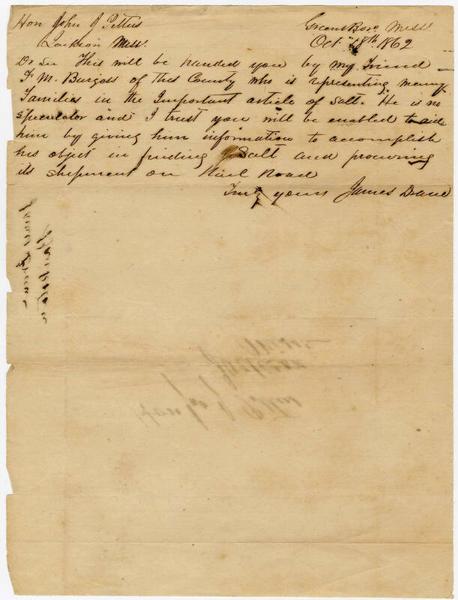 Hon John J Pettus
Greens Boro Miss.
Jackson Miss.
Oct. 18th 1862
Dr Sir This will be handed you by my Friend
F. M. Burgess of this County who is representing many
Families in the Important article of Salt. He is no
Speculator and I trust you will be enabled to aid
him by giving him information to accomplish
his object in finding Salt and procuring
its shipment on Rail Road
Truly yours James Drane
James Drane